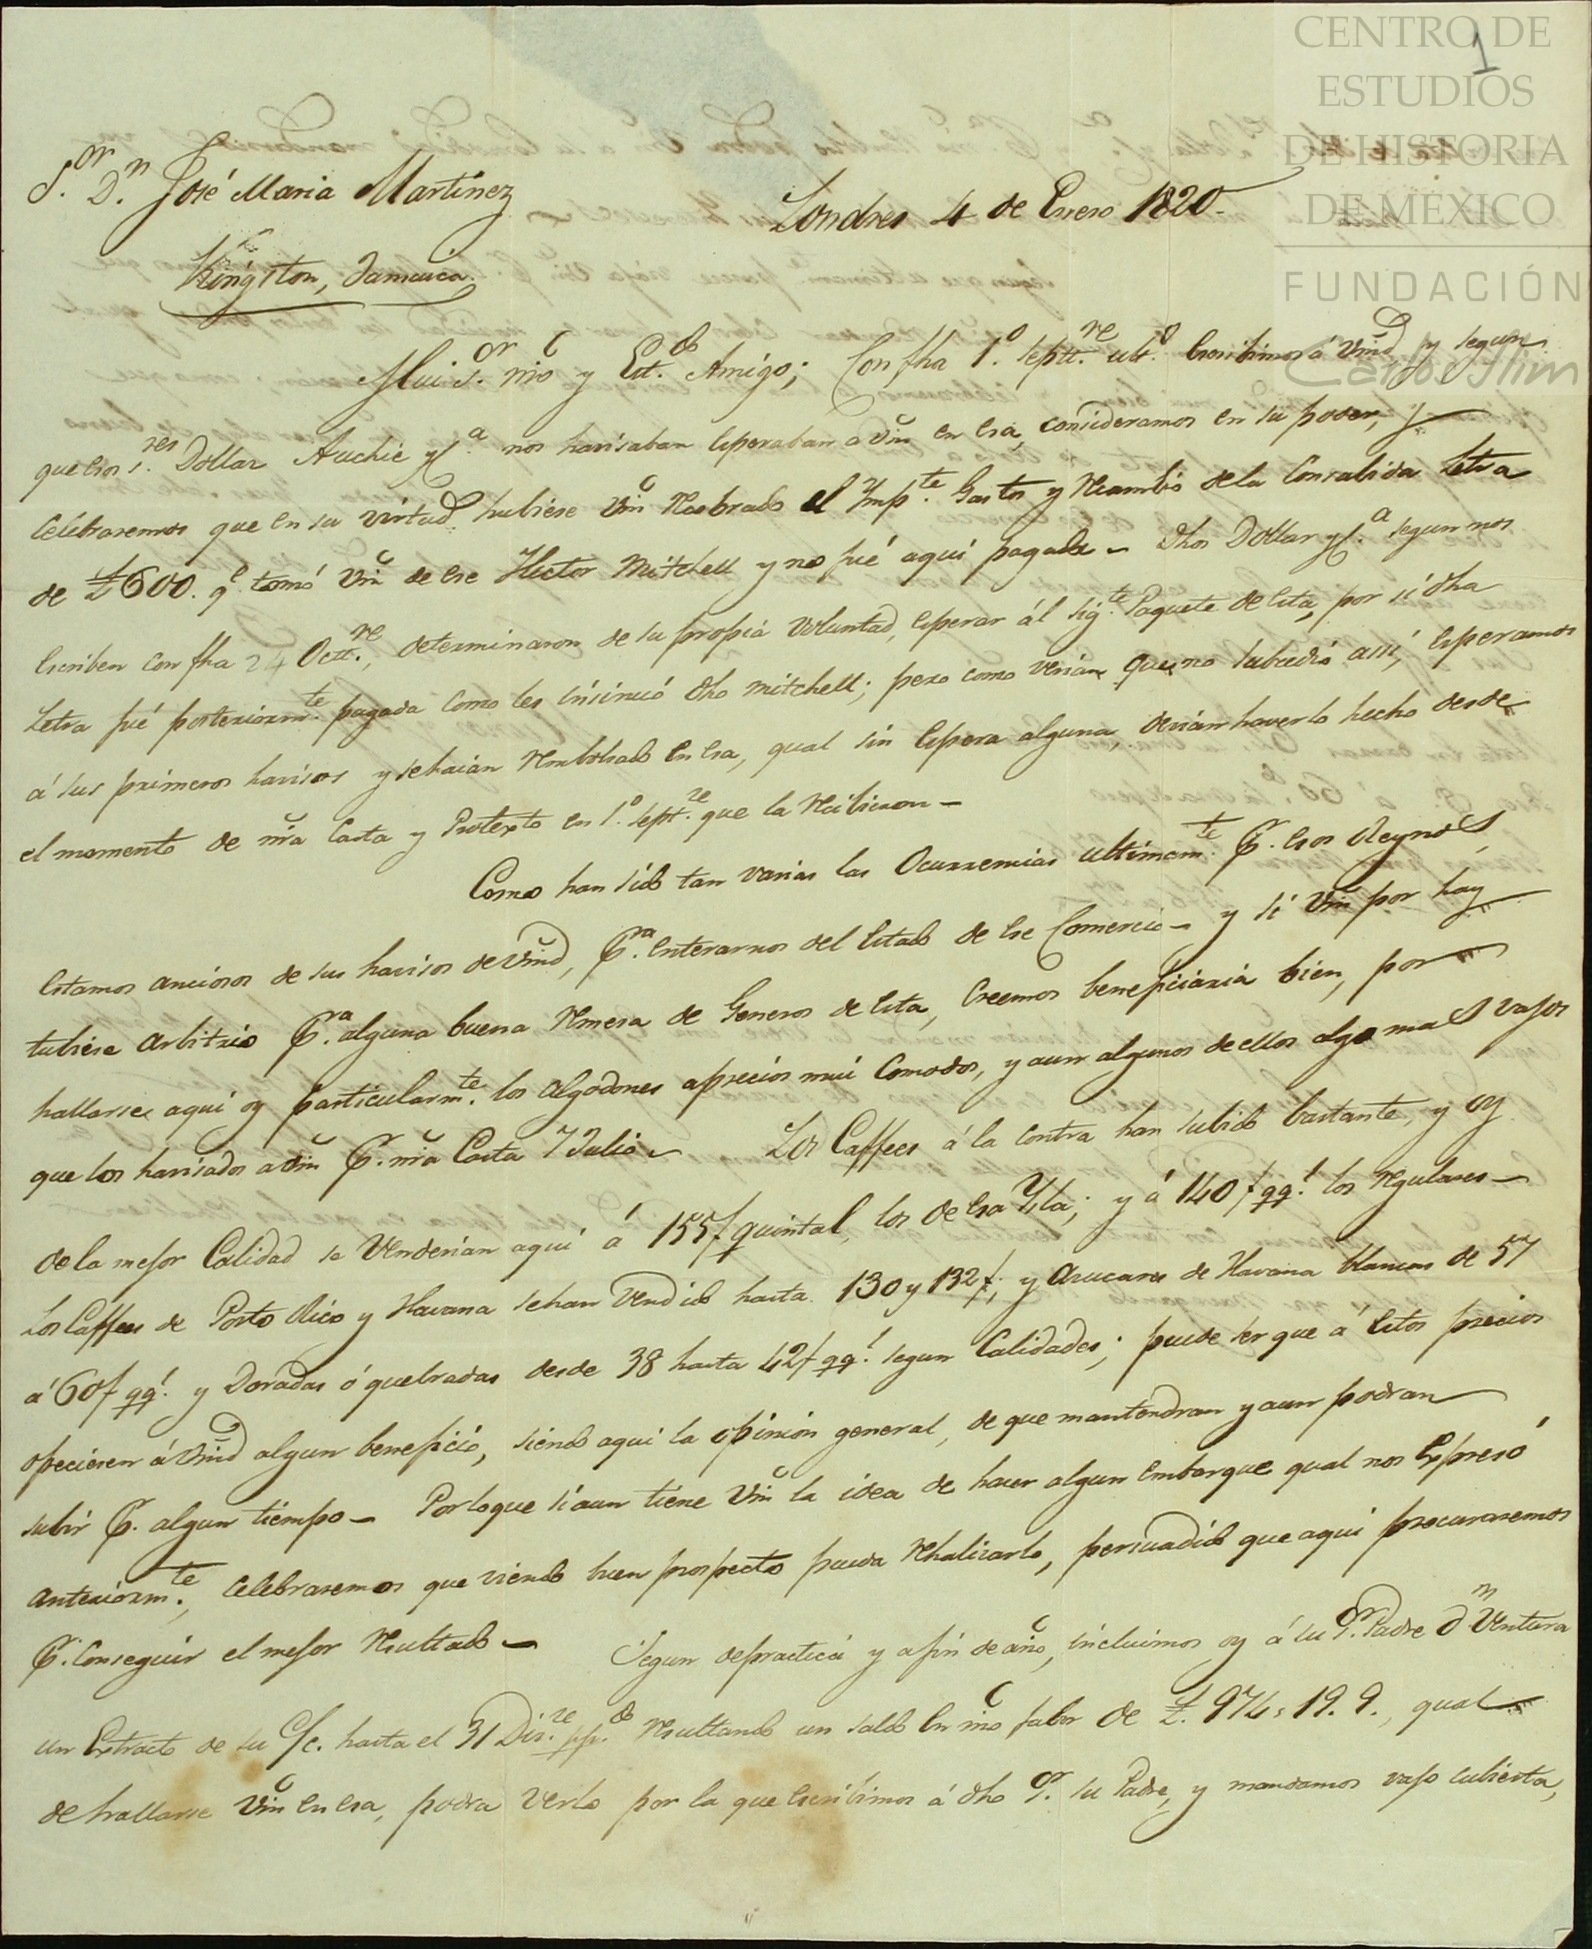 CENTRO DE
ESTUDIOS
DE HISTORIA
DE MEXICO
FUNDACIÓN
Carlos Slim
1
S.or D.n José Maria Martinez
Londres 4 de Enero 1820.
Kingston, Jamaica.
Mui S.or mio y Est.do Amigo; Con fha 1.o Septt.re ult.o escribimos á Vmd y segun
que esos S.res Dollar Auchie y C.a nos havisaban esperaban a Vm en esa, consideramos en su poder, y
Celebraremos que en su virtud hubiese Vm Recobrado el Ymp.te Gastos y Recambio de la Consabida Letra
de £600. q.e tomó Vm de ese Hector Mitchell y no fué aqui pagada – Dhos Dollar y C.a segun nos
Escriben con fha 24 Octt.re, determinaron de su propia Voluntad, esperar ál sig.te Paquete de esta, por si dha
Letra fué posteriorm.te pagada como les insinuó dho Mitchell; pero como verian que no subcedió assi, Esperamos
á sus primeros havisos y se haián Rembolsado en esa, qual sin Espera alguna, devian haverlo hecho desde
el momento de nra Carta y Protexto en 1.o Sept.re que la Recibieron –
Como han sido tan varias las Ocurrencias ultimam.te P.r esos Reynos,
Estamos anciosos de sus havisos de Vmd, P.ra enterarnos del estado de ese Comercio – y si Vm por hay
tubiese arbitrio P.a alguna buena Remesa de Generos de esta, Creemos beneficiaria bien, por
hallarse aqui oy particularm.te los Algodones a precios mui Comodos, y aun algunos de ellos algo mas vajos
que los havisados a Vm P.r nra Carta 7 Julio – Los Caffees á la contra han subido bastante, y oy
de la mejor Calidad se Venderian aqui á 155/ quintal, los de esa Ysla; y á 140/ qq.l los Regulares –
Los Caffees de Porto Rico y Havana se han Vendido hasta 130 y 132/; y Azucares de Havana blancas de 57
á 60/ qq.l y Doradas ó quebradas desde 38 hasta 42/ qq.l segun Calidades; puede ser que á estos precios
ofreciesen á Vmd algun beneficio, siendo aqui la opinion general, de que mantendran y aun podran
subir P.r algun tiempo – Por lo que si aun tiene Vm la idea de hacer algun embarque qual nos Expresó
anteriorm.te, Celebraremos que viendo buen prospecto pueda Rehalizarlo, persuadido que aqui procuraremos
P.r Conseguir el mejor Resultado – Segun de practica y a fin de año, incluimos oy á su S.or Padre D.n Ventura
un Extracto de su C/C. hasta el 31 Diz.re pp.do Resultando un saldo en nro fabor de £. 974 = 19. 9., qual
de hallarse Vm en esa, podra verlo por la que escribimos á dho S.or su Padre, y mandamos vajo cubierta,